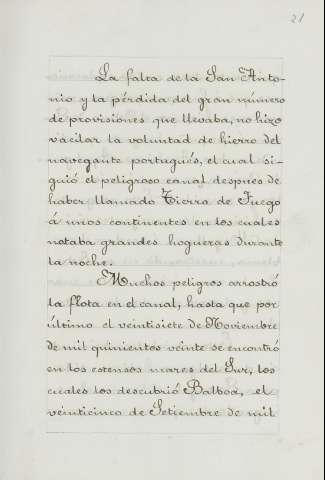 21
La falta de la San Anto-
nio y la pérdida del gran número
de provisiones que llevaba, no hizo
vacilar la voluntad de hierro del
navegante portugués, el cual si-
guió el peligroso canal despues de
haber llamado Tierra de Fuego
á unos continentes en los cuales
notaba grandes hogueras durante
la noche.
Muchos peligros arrostró
la flota en el canal, hasta que por
último el veintisiete de Noviembre
de mil quinientos veinte se encontró
en los estensos mares del Sur, los
cuales los descubrió Balboa, el
veinticinco de Setiembre de mil